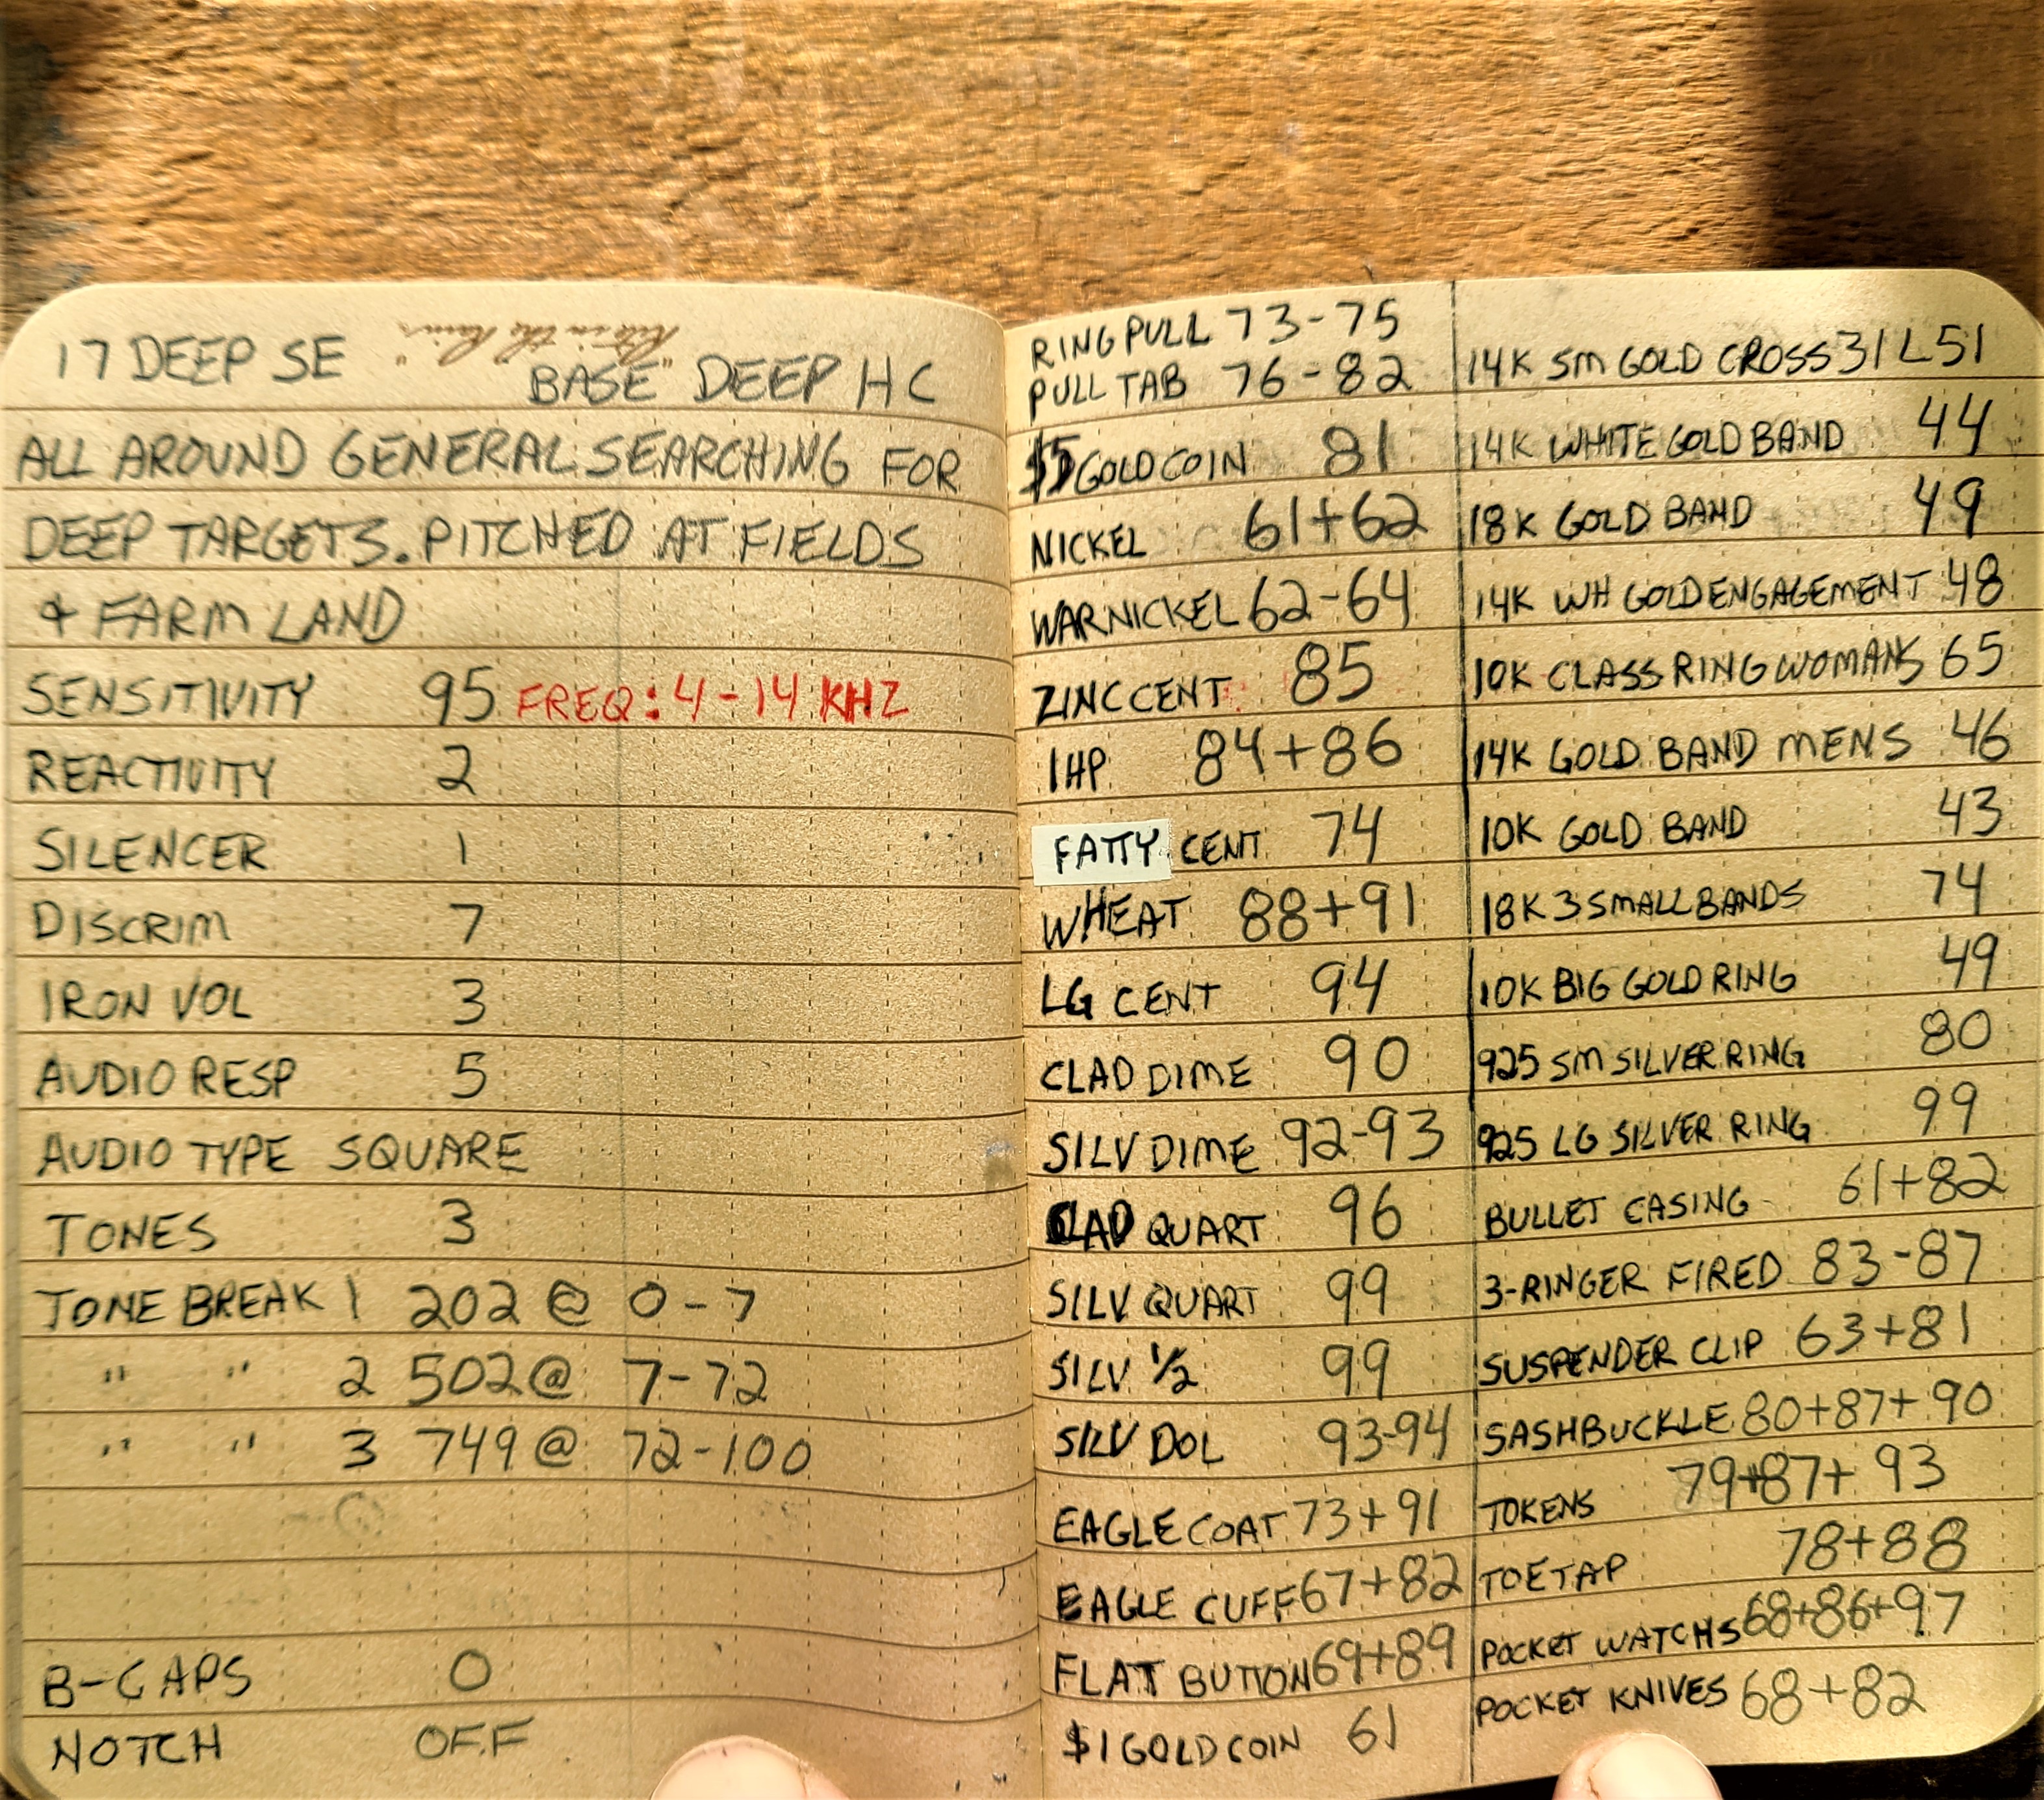 17 DEEP SE
"Rite in the Rain"
BASE DEEP HC
ALL AROUND GENERAL SEARCHING FOR
DEEP TARGETS. PITCHED AT FIELDS
& FARM LAND
SENSITIVITY 95 FREQ: 4-14 KHZ
REACTIVITY 2
SILENCER 1
DISCRIM 7
IRON VOL 3
AUDIO RESP 5
AUDIO TYPE SQUARE
TONES 3
TONE BREAK 1 202 @ 0-7
" " 2 502 @ 7-72
" " 3 749 @ 72-100
B-CAPS 0
NOTCH OFF
RING PULL 73-75
PULL TAB 76-82
$5 GOLD COIN 81
NICKEL 61+62
WAR NICKEL 62-64
ZINC CENT 85
IHP 84+86
FATTY CENT 74
WHEAT 88+91
LG CENT 94
CLAD DIME 90
SILV DIME 92-93
CLAD QUART 96
SILV QUART 99
SILV 1/2 99
SILV DOL 93-94
EAGLE COAT 73+91
EAGLE CUFF 67+82
FLAT BUTTON 69+89
$1 GOLD COIN 61
14K SM GOLD CROSS 31 L51
14K WHITE GOLD BAND 44
18K GOLD BAND 49
14K WH GOLD ENGAGEMENT 48
10K CLASS RING WOMANS 65
14K GOLD BAND MENS 46
10K GOLD BAND 43
18K 3 SMALL BANDS 74
10K BIG GOLD RING 49
925 SM SILVER RING 80
925 LG SILVER RING 99
BULLET CASING 61+82
3-RINGER FIRED 83-87
SUSPENDER CLIP 63+81
SASHBUCKLE 80+87+90
TOKENS 79+87+93
TOETAP 78+88
POCKET WATCHS 68+86+97
POCKET KNIVES 68+82